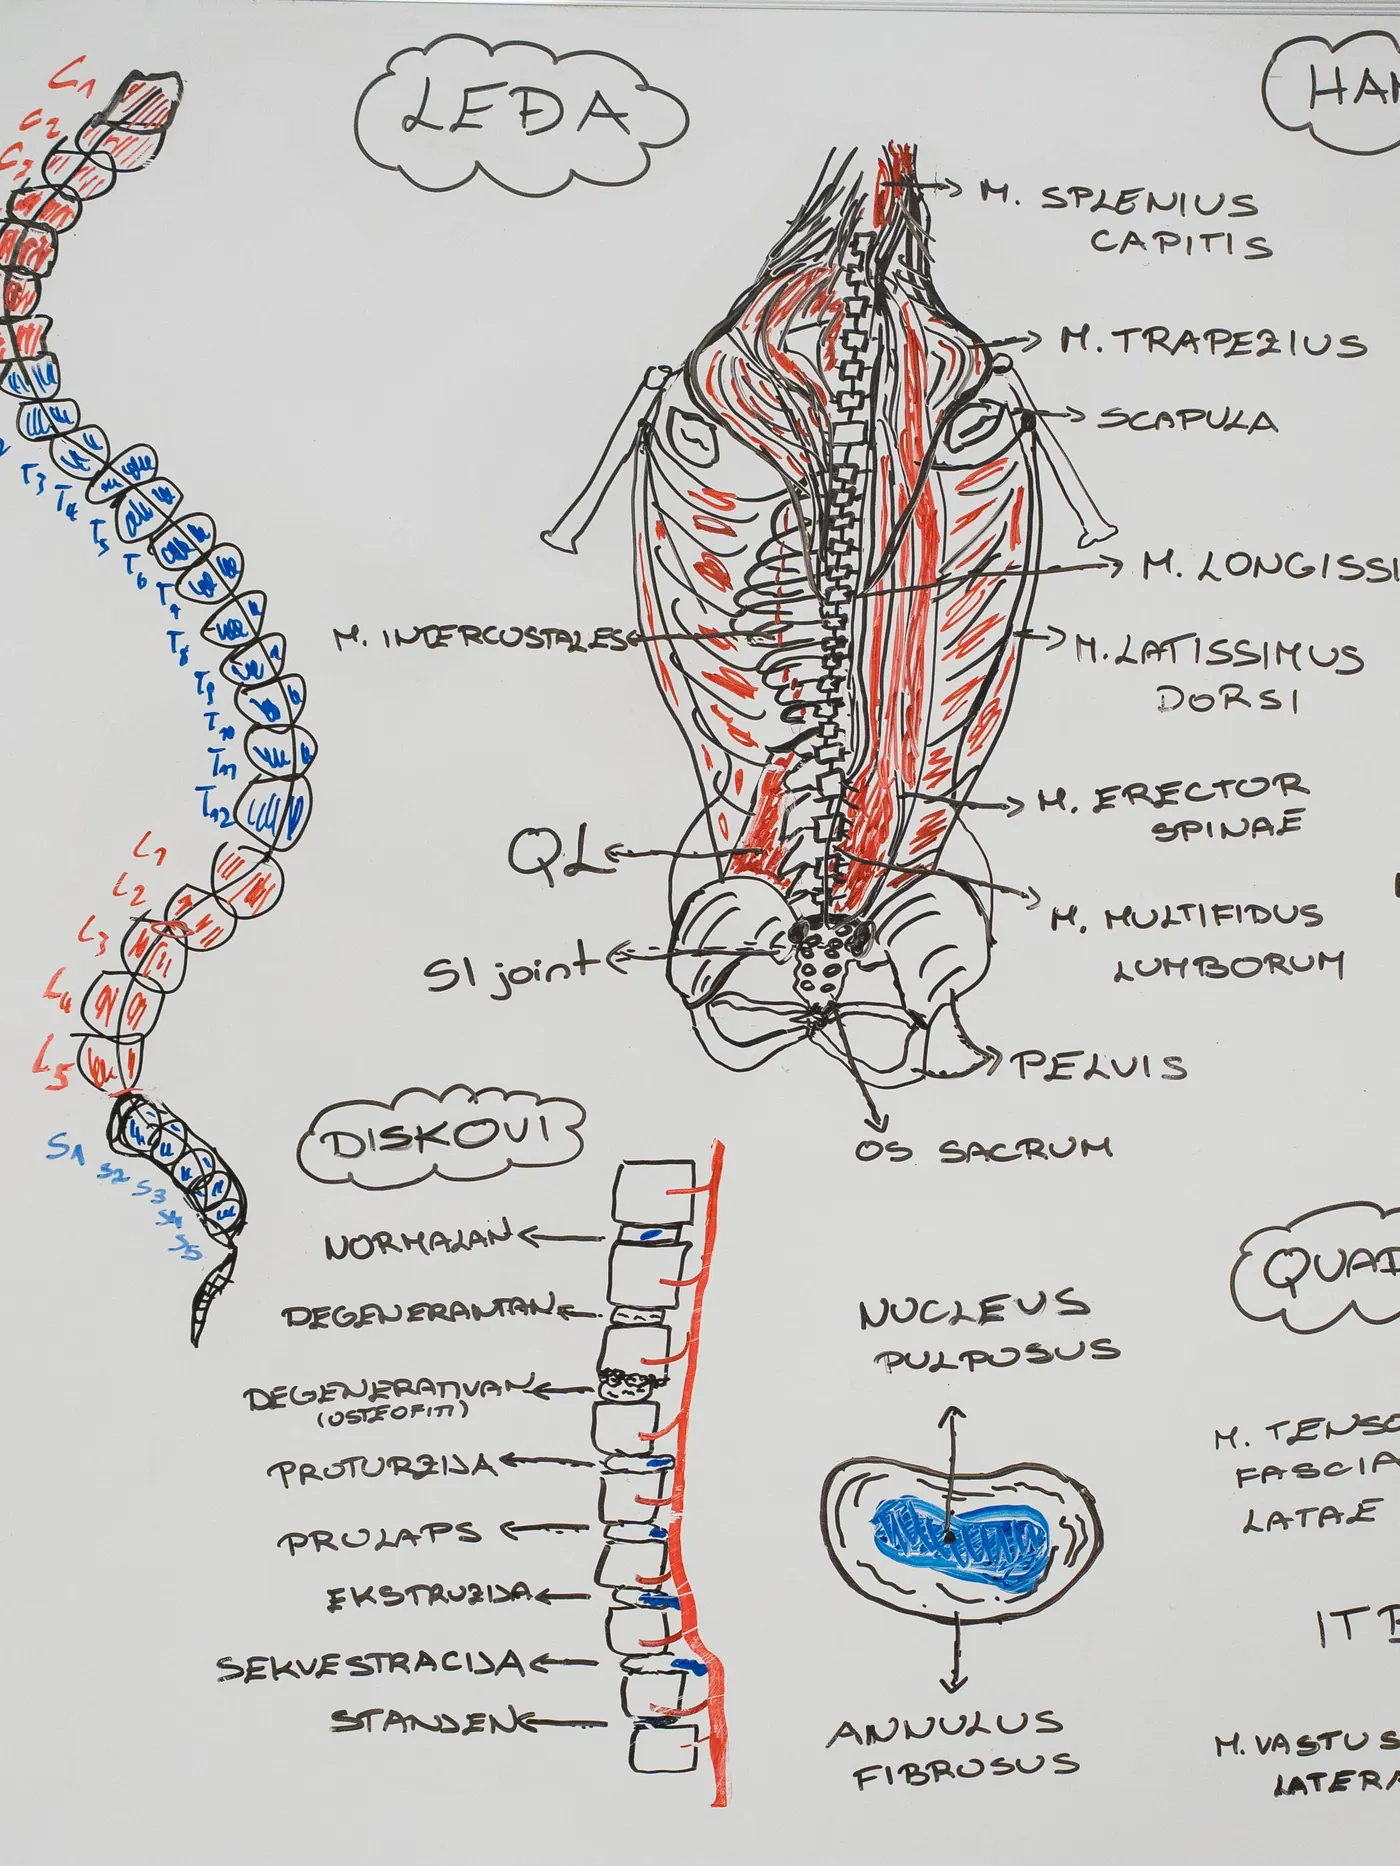 LEĐA
HAM
C1
C2
C3
T3
T4
T5
T6
T7
T8
T9
T10
T11
T12
L1
L2
L3
L4
L5
S1
S2
S3
S4
S5
M. SPLENIUS
CAPITIS
M. TRAPEZIUS
SCAPULA
M. LONGISSI
M. INTERCOSTALES
M. LATISSIMUS
DORSI
M. ERECTOR
SPINAE
QL
M. MULTIFIDUS
LUMBORUM
SI joint
PELVIS
OS SACRUM
DISKOVI
NORMALAN
DEGENERANTAN
DEGENERATIVAN
(OSTEOFITI)
PROTURZIJA
PROLAPS
EKSTRUZIJA
SEKVESTRACIJA
STANJEN
NUCLEUS
PULPOSUS
ANNULUS
FIBROSUS
QUAD
M. TENSO
FASCIA
LATAE
ITB
M. VASTUS
LATERA